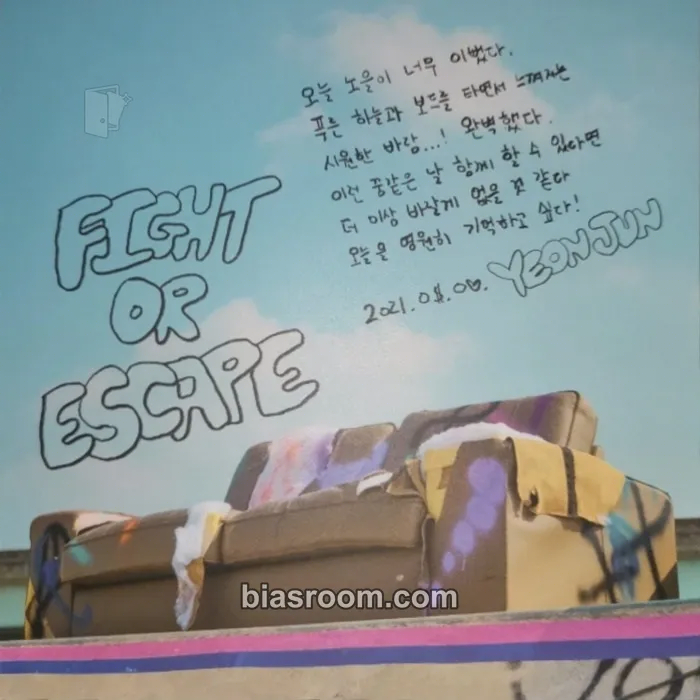 오늘 노을이 너무 이뻤다.
푸른 하늘과 보드를 타면서 느껴지는
시원한 바람...! 완벽했다.
이런 꿈같은 날 함께 할 수 있다면
더 이상 바랄게 없을 것 같다
오늘을 영원히 기억하고 싶다!
2021.
YEONJUN
FIGHT
OR
ESCAPE
biasroom.com